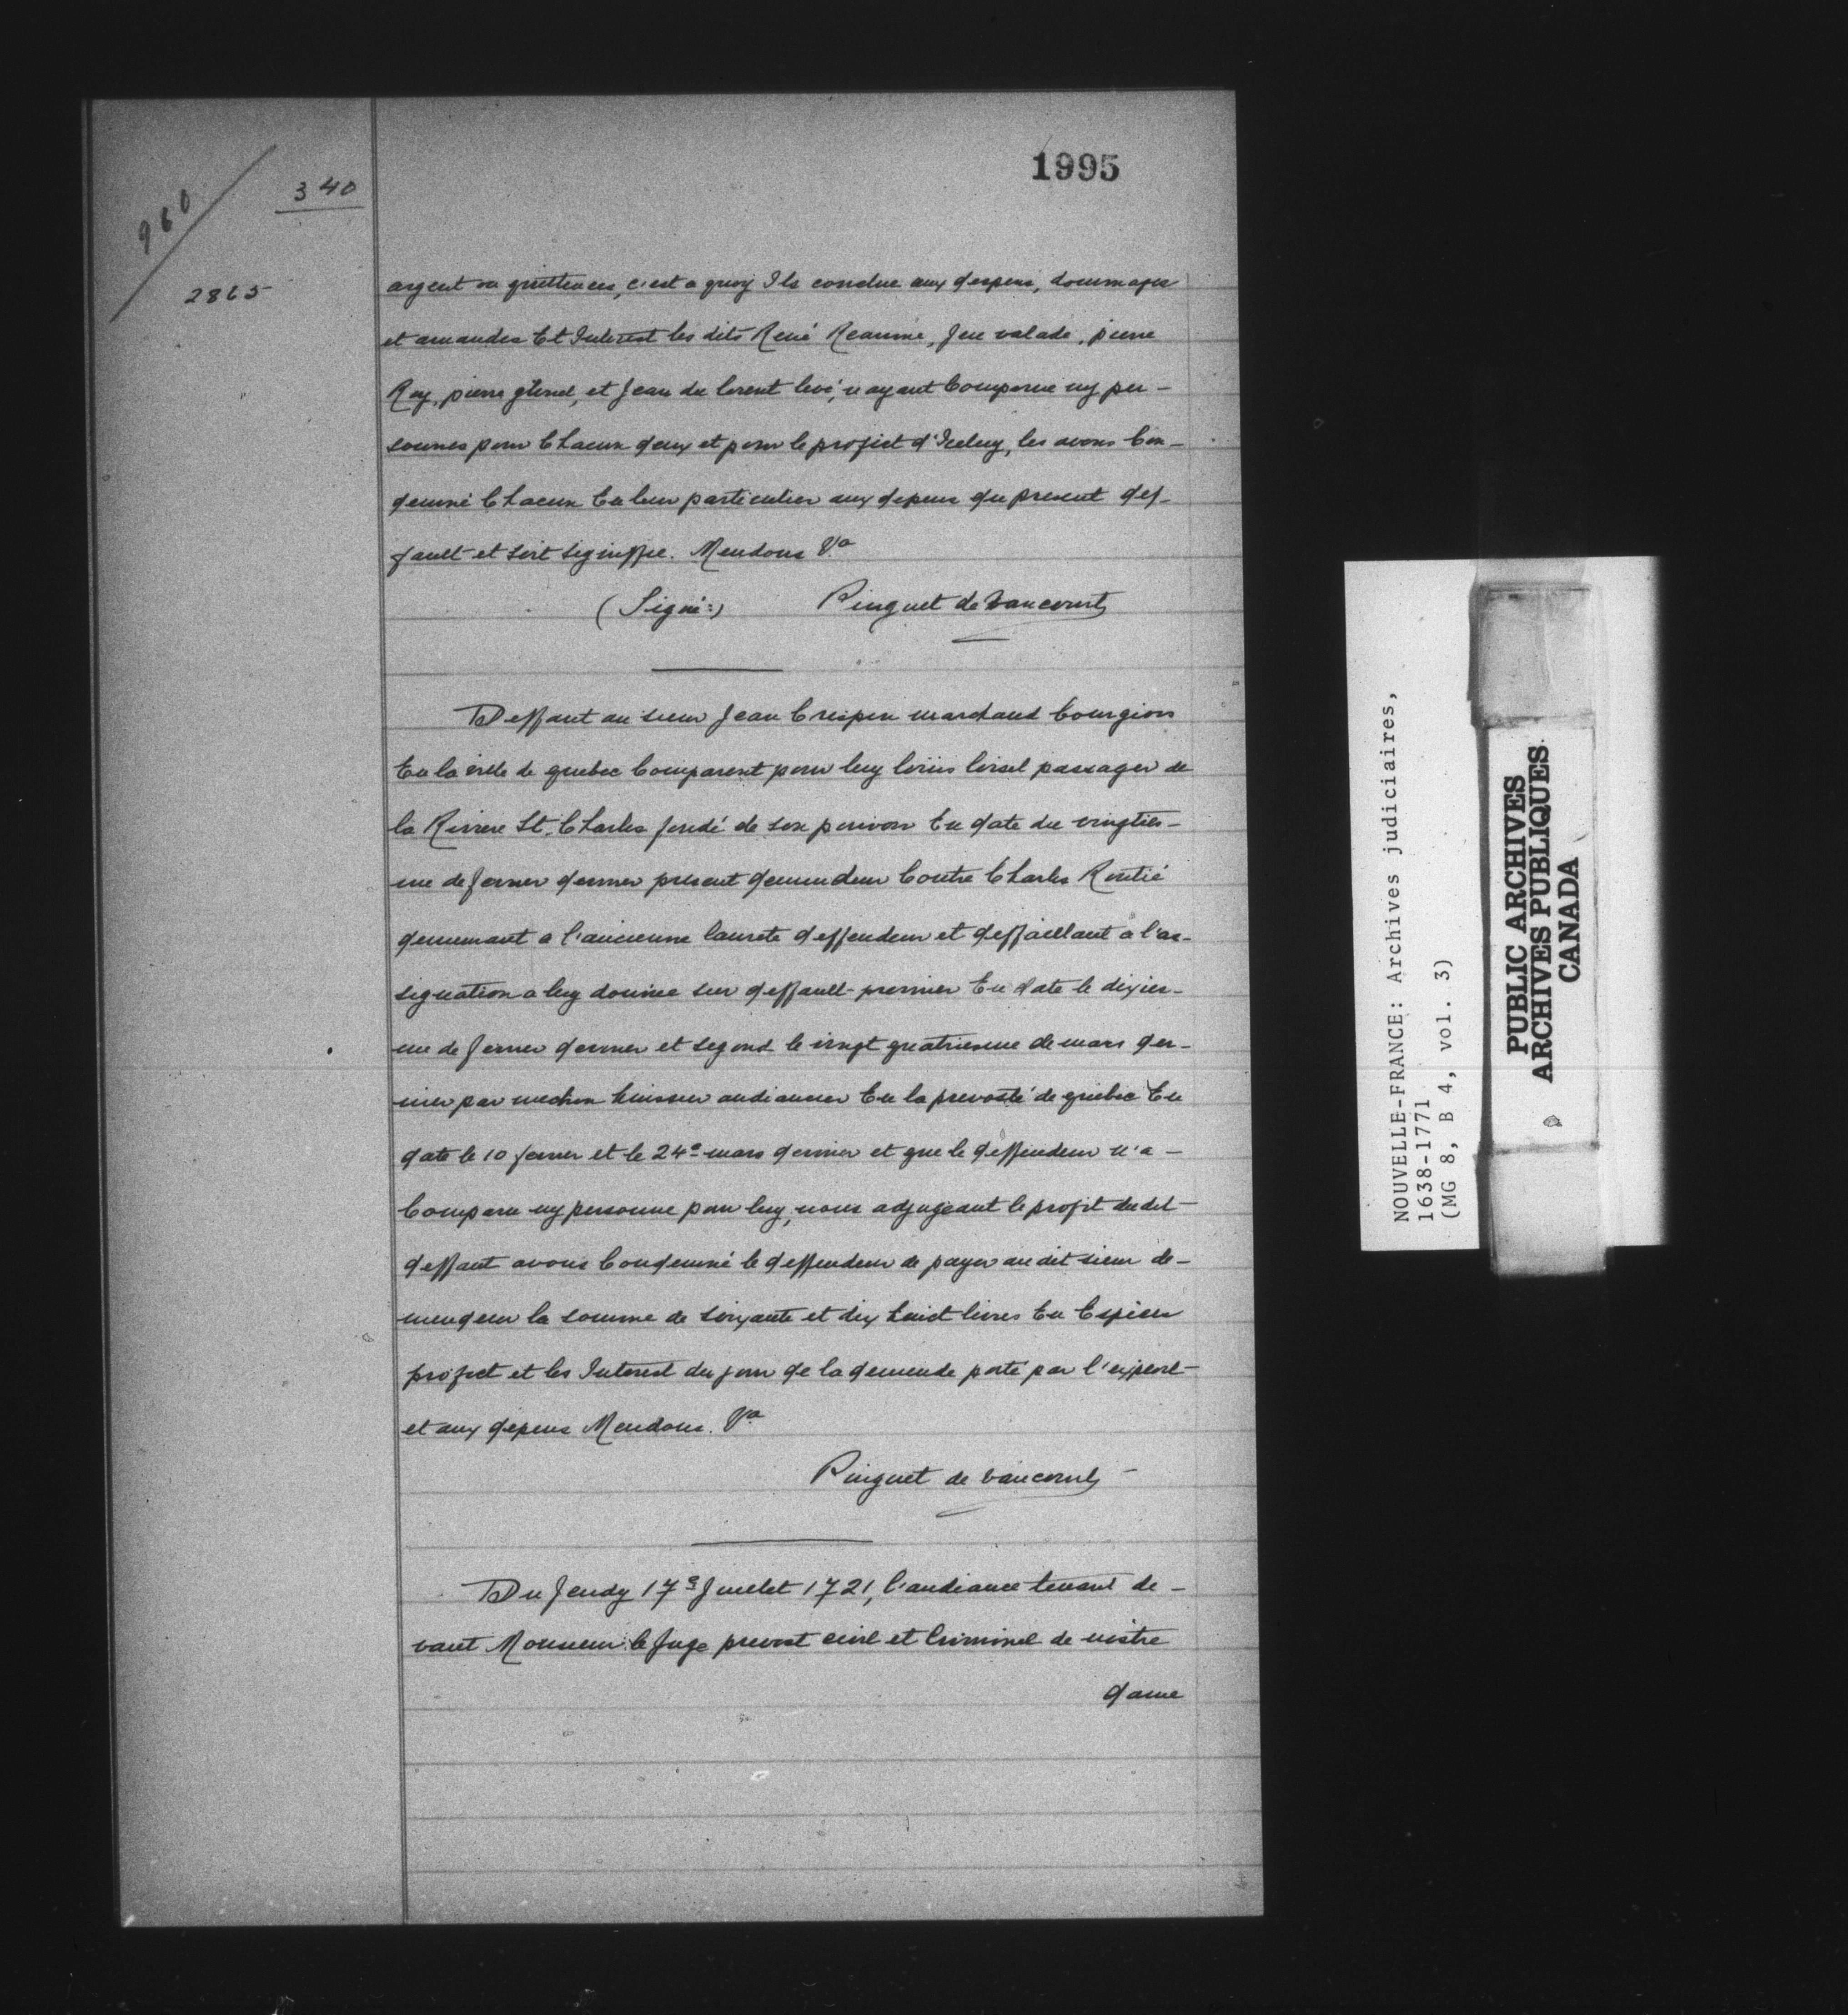 1995
340
960
2865
argent ou quittances, c'est a quoy Ils conclue aux despens, dommages
et amandes Et Interest les dits René Reaume, Jea valade, pierre
Roy, pierre et Jean du lorent levé, n'ayant Comparue ny per-
sonnes pour Chacun deux et pour le profict d'Iceluy, les avons Con-
demné Chacun En leur particulier aux depens du present def-
fault et soit signiffie. Mendons &a
(Signé:) Pinguet de Vaucourt
Deffaut au sieur Jean Crespin marchand bourgiois
En la ville de quebec Comparent pour luy loüis loisel passager de
la Riviere St. Charles fondé de son pouvoir En date du vingties-
me de fevrier dernier present demendeur Contre Charles Routié
demeurant a l'ancienne laurete deffendeur et deffaillant à l'as-
signation a luy donnée sur deffault premier En date le dixies-
me de fevrier dernier et segond le vingt quatriesme de mars der-
nier par mechon huissier audiancier En la prevosté de quebec En
date le 10 fevrier et le 24e mars dernier et que le deffendeur n'a
Comparu ny personne pour luy, nous adjugeant le profit dudit
deffaut avons Condemné le deffendeur de payer au dit sieur de-
mendeur la somme de soixante et dix huict livres En Espices
profict et les Interest du jour de la demende porté par l'exploit
et aux depens Mendons. &a
Pinguet de Vaucourt
Du Jeudy 17e Juillet 1721, l'audiance tenant de-
vant Monsieur le Juge prevost civil et Criminel de nostre
dame
NOUVELLE-FRANCE: Archives judiciaires,
1638-1771
(MG 8, B 4, vol. 3)
PUBLIC ARCHIVES
ARCHIVES PUBLIQUES
CANADA